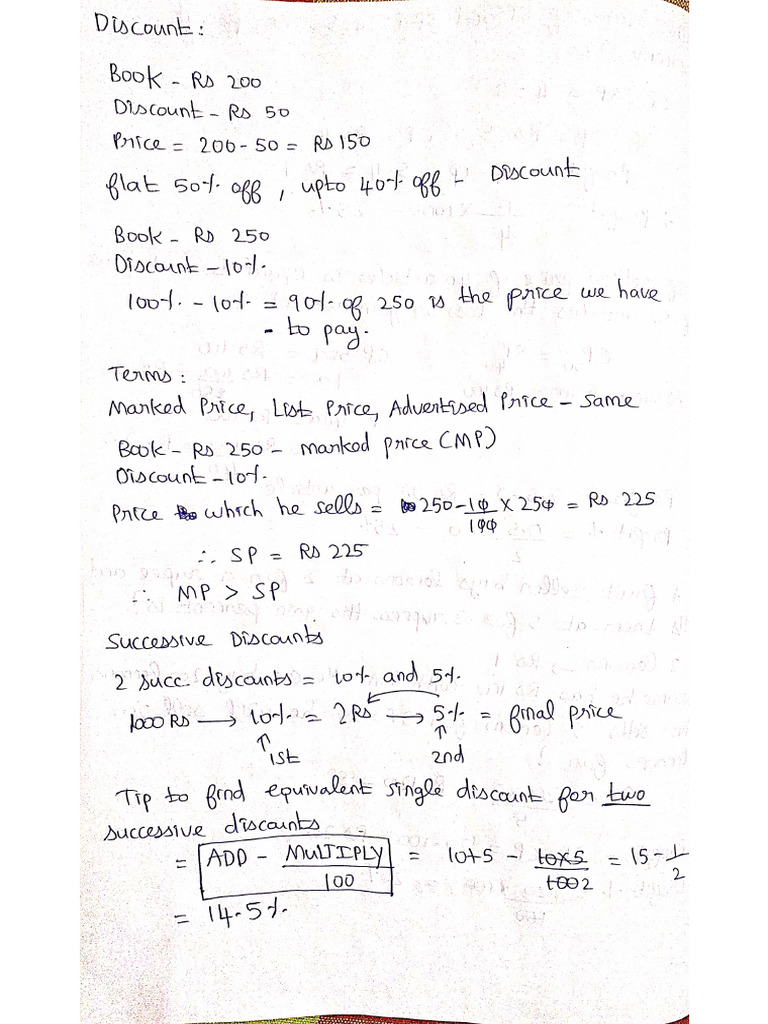 Discount:
Book - Rs 200
Discount - Rs 50
Price = 200 - 50 = Rs 150
flat 50% off, upto 40% off - Discount
Book - Rs 250
Discount - 10%.
100% - 10% = 90% of 250 is the price we have
- to pay.
Terms:
Marked Price, List Price, Advertised Price - same
Book - Rs 250 - marked price (MP)
Discount - 10%.
Price which he sells = 250 - 10/100 x 250 = Rs 225
∴ SP = Rs 225
∴ MP > SP
Successive Discounts
2 succ. discounts = 10% and 5%.
1000 Rs → 10% = ? Rs → 5% = final price
↑ 1st ↑ 2nd
Tip to find equivalent single discount for two
successive discounts
= ADD - MULTIPLY/100 = 10+5 - 10x5/100 2 = 15 - 1/2
= 14.5%